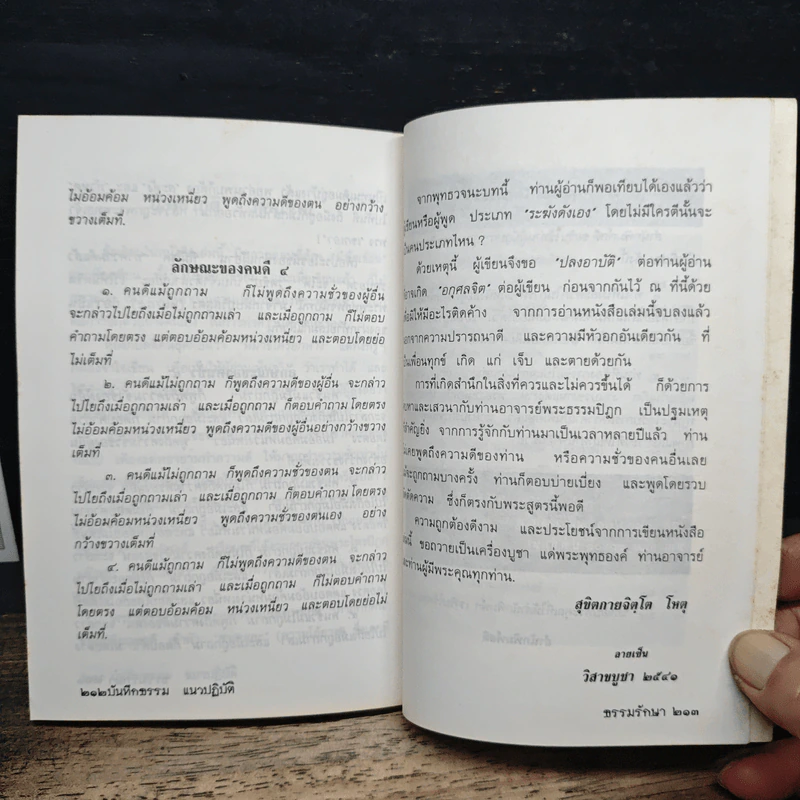 ไม่อ้อมค้อม หน่วงเหนี่ยว พูดถึงความดีของตน อย่างกว้าง
ขวางเต็มที่.
ลักษณะของคนดี ๔
๑. คนดีแม้ถูกถาม ก็ไม่พูดถึงความชั่วของผู้อื่น
จะกล่าวไปไยถึงเมื่อไม่ถูกถามเล่า และเมื่อถูกถาม ก็ไม่ตอบ
คำถามโดยตรง แต่ตอบอ้อมค้อมหน่วงเหนี่ยว และตอบโดยย่อ
ไม่เต็มที่
๒. คนดีแม้ไม่ถูกถาม ก็พูดถึงความดีของผู้อื่น จะกล่าว
ไปไยถึงเมื่อถูกถามเล่า และเมื่อถูกถาม ก็ตอบคำถามโดยตรง
ไม่อ้อมค้อมหน่วงเหนี่ยว พูดถึงความดีของผู้อื่นอย่างกว้างขวาง
เต็มที่
๓. คนดีแม้ไม่ถูกถาม ก็พูดถึงความชั่วของตน จะกล่าว
ไปไยถึงเมื่อถูกถามเล่า และเมื่อถูกถาม ก็ตอบคำถามโดยตรง
ไม่อ้อมค้อมหน่วงเหนี่ยว พูดถึงความชั่วของตนเอง อย่าง
กว้างขวางเต็มที่
๔. คนดีแม้ถูกถาม ก็ไม่พูดถึงความดีของตน จะกล่าว
ไปไยถึงเมื่อไม่ถูกถามเล่า และเมื่อถูกถาม ก็ไม่ตอบคำถาม
โดยตรง แต่ตอบอ้อมค้อม หน่วงเหนี่ยว และตอบโดยย่อไม่
เต็มที่.
๒๑๒บันทึกธรรม แนวปฏิบัติ
จากพุทธวจนะบทนี้ ท่านผู้อ่านก็พอเทียบได้เองแล้วว่า
ผู้เขียนหรือผู้พูด ประเภท "ระฆังดังเอง" โดยไม่มีใครตีนั้นจะ
เป็นคนประเภทไหน ?
ด้วยเหตุนี้ ผู้เขียนจึงขอ "ปลงอาบัติ" ต่อท่านผู้อ่าน
อาจเกิด "อกุศลจิต" ต่อผู้เขียน ก่อนจากกันไว้ ณ ที่นี้ด้วย
เพื่อมิให้มีอะไรติดค้าง จากการอ่านหนังสือเล่มนี้จบลงแล้ว
นอกจากความปรารถนาดี และความมีหัวอกอันเดียวกัน ที่
เป็นเพื่อนทุกข์ เกิด แก่ เจ็บ และตายด้วยกัน
การที่เกิดสำนึกในสิ่งที่ควรและไม่ควรขึ้นได้ ก็ด้วยการ
คบหาและเสวนากับท่านอาจารย์พระธรรมปิฎก เป็นปฐมเหตุ
สำคัญยิ่ง จากการรู้จักกับท่านมาเป็นเวลาหลายปีแล้ว ท่าน
ไม่เคยพูดถึงความดีของท่าน หรือความชั่วของคนอื่นเลย
แม้จะถูกถามบางครั้ง ท่านก็ตอบบ่ายเบี่ยง และพูดโดยรวบ
รัดตัดความ ซึ่งก็ตรงกับพระสูตรนี้พอดี
ความถูกต้องดีงาม และประโยชน์จากการเขียนหนังสือ
เล่มนี้ ขอถวายเป็นเครื่องบูชา แด่พระพุทธองค์ ท่านอาจารย์
และท่านผู้มีพระคุณทุกท่าน.
สุขิตกายจิตฺโต โหตุ
ฉายเซ็น
วิสาขบูชา ๒๕๔๑
ธรรมรักษา ๒๑๓